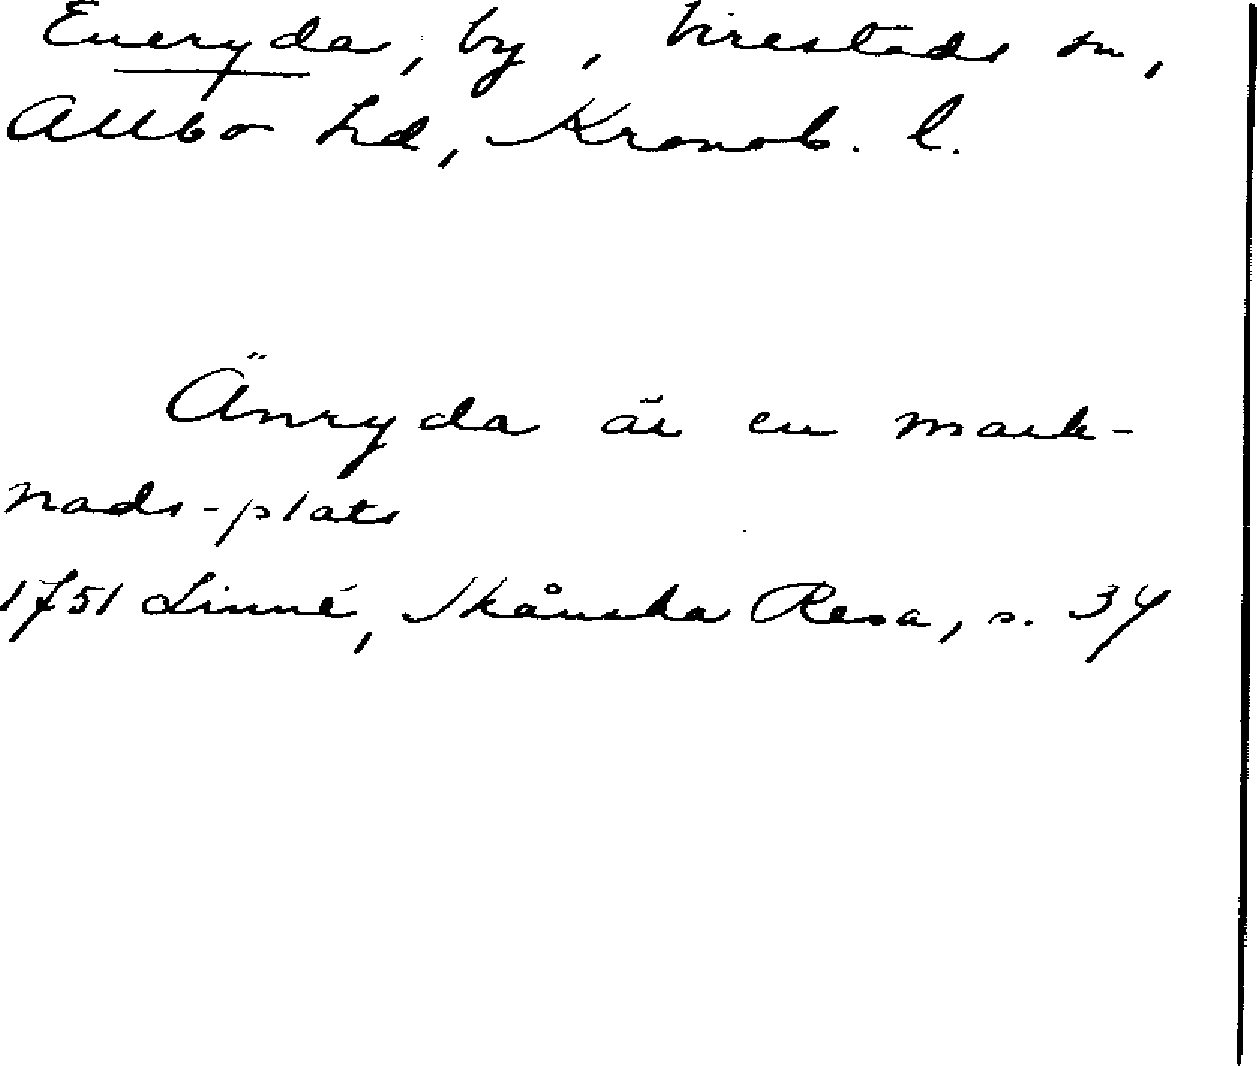 Eneryda, by, Virestads sn,
Allbo hd, Kronob. l.
Änryda är en mark-
nads-plats
1751 Linné, Skånska Resa, s. 34